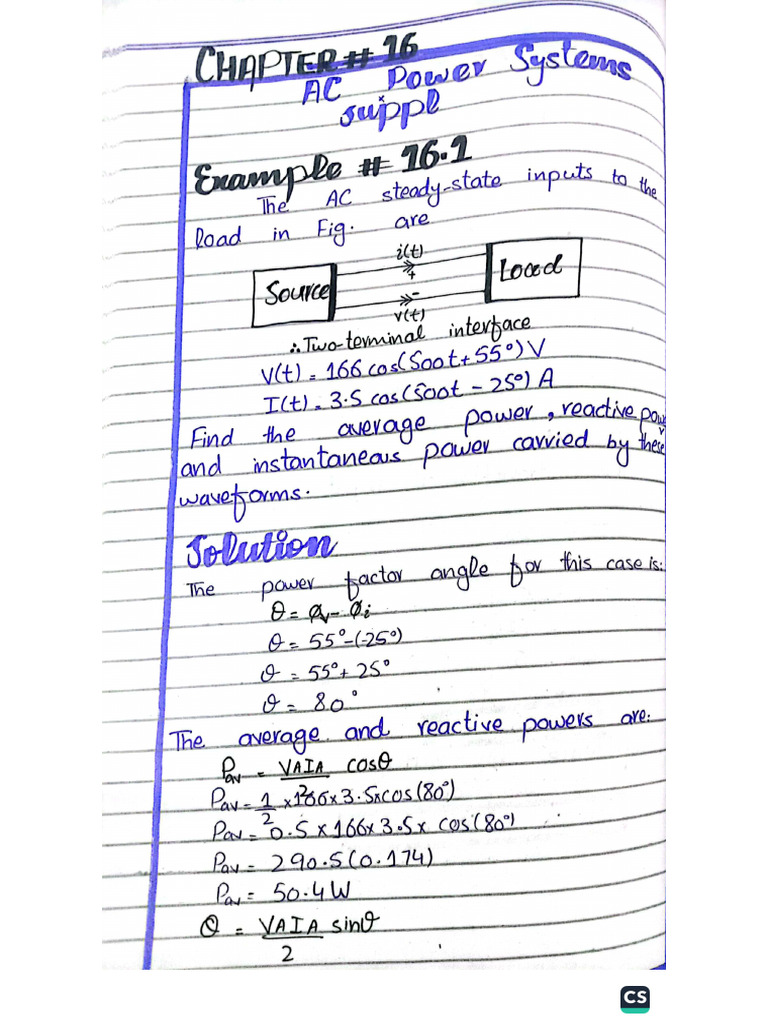 CHAPTER # 16
AC Power Systems
suppl
Example # 16.1
The AC steady-state inputs to the
load in Fig. are
i(t)
Source
+
-
Load
v(t)
∴Two-terminal interface
V(t) = 166 cos(500t+55°) V
I(t) = 3.5 cos(500t - 25°) A
Find the average power, reactive power
and instantaneous power carried by these
waveforms.
Solution
The power factor angle for this case is:
θ = Øv - Øi
θ = 55°-(-25°)
θ = 55°+ 25°
θ = 80°
The average and reactive powers are:
Pav = VAIA/2 cosθ
Pav = 1/2 x166x3.5xcos(80°)
Pav = 0.5 x166x 3.5x cos(80°)
Pav = 290.5(0.174)
Pav = 50.4 W
Q = VAIA/2 sinθ
CS